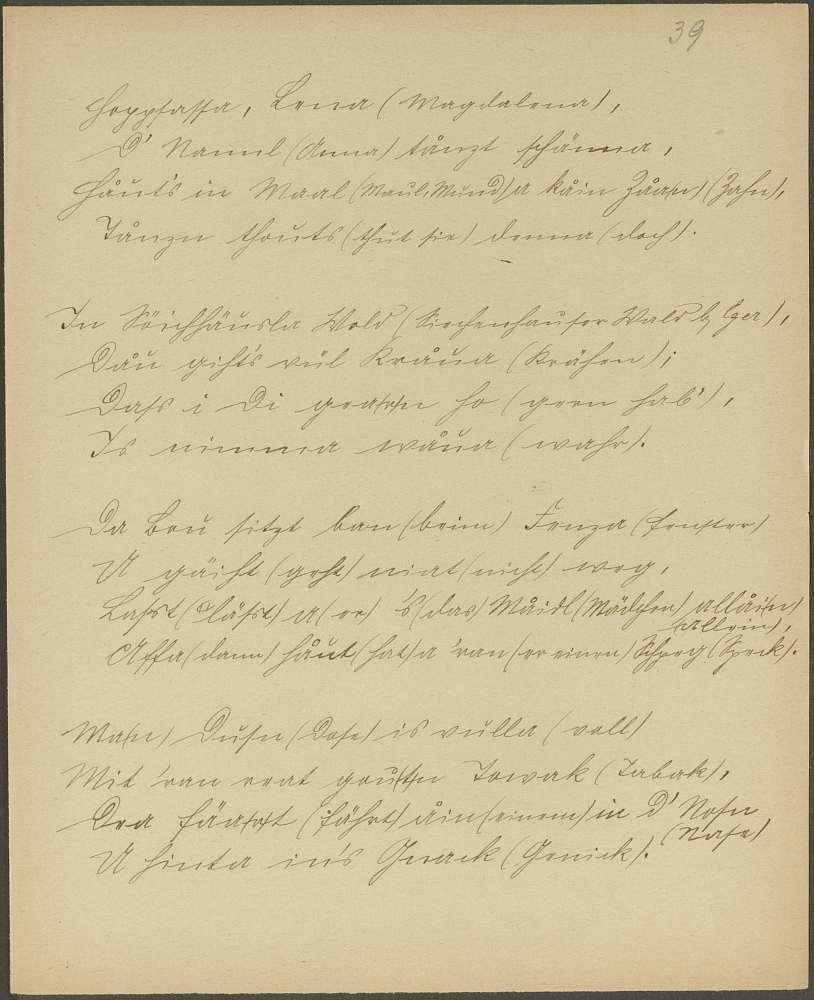 39
Hoppsassa, Lena (Magdalena),
D' Nannl (Anna) tånzt schänna,
Håut's in Maal (Maul, Mund) a kåin Zåa(n) (Zahn),
Tånzn thouts (thut sie) denna (doch).
In Söichhäusla Wold (Siechenhauser Wald b. Eger),
Dåu giht's vül Kråua (Krähen);
Dass i Di gea(r)n ho (gern hab'),
Is nimma wåua (wahr).
Da Bou sitzt ban (beim) Fenza (Fenster)
U gäiht (geht) niat (nicht) weg,
Lässt (läßt) a (er) 's (das) Måidl (Mädchen) allåi(n)
(allein),
Affa (dann) håut (hat) a 'ran (er einen) Schpeg (Speck).
Ma(n) Dusn (Dose) is vulla (voll)
Mit 'ran reat gou(t)n Towak (Tabak),
Dea fäa(r)t (fährt) åin (einem) in d' Nosn
(Nase)
U hinta in's Gnack (Genick).